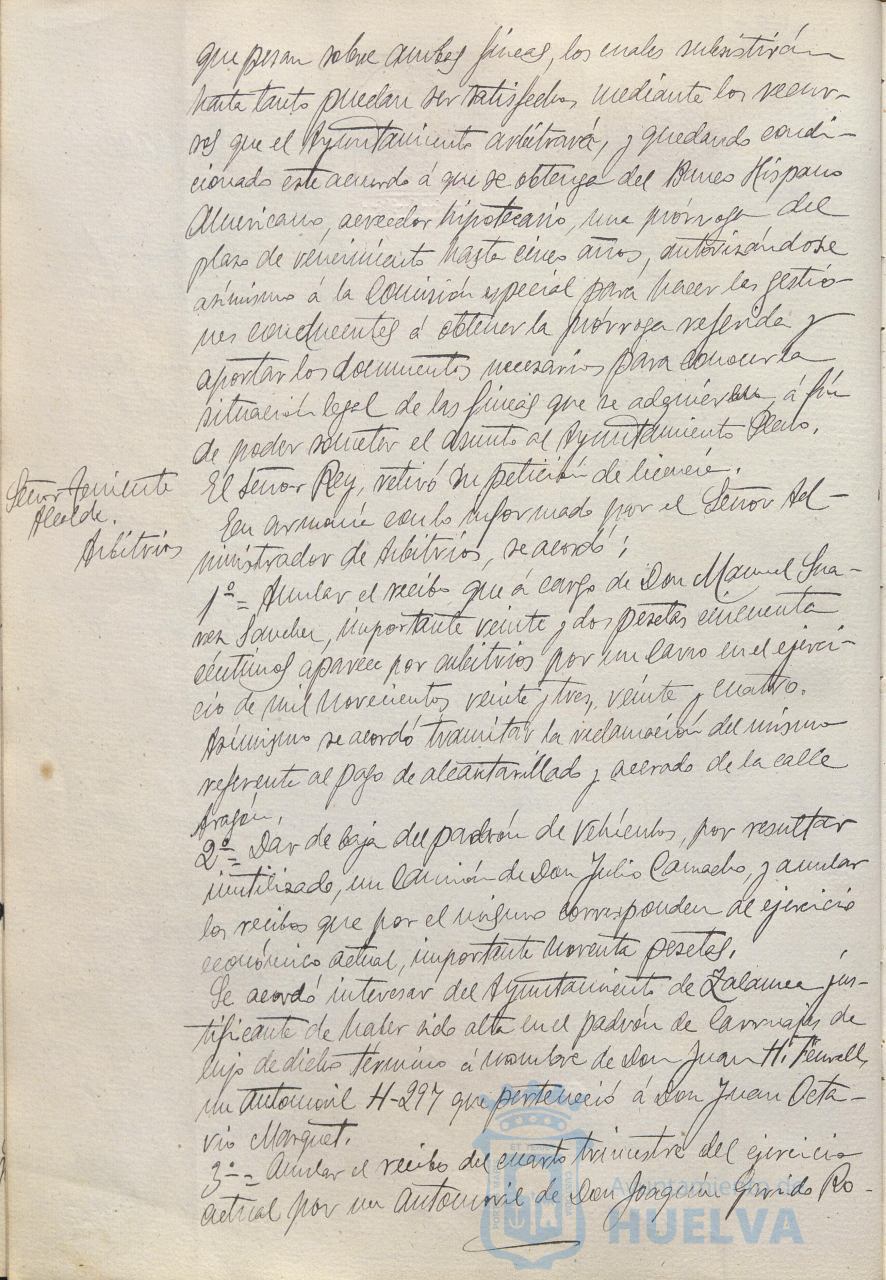 que pesan sobre ambas fincas, los cuales subsistirán
hasta tanto puedan ser satisfechos mediante los recur-
sos que el Ayuntamiento arbitrará, y quedando condi-
cionado este acuerdo á que se obtenga del Banco Hispano
Americano, acreedor hipotecario, una prórroga del
plazo de vencimiento hasta cinco años, autorizándose
asimismo á la Comisión especial para hacer las gestio-
nes conducentes á obtener la prórroga referida y
aportar los documentos necesarios para conocer la
situación legal de las fincas que se adquieran, á fin
de poder someter el asunto al Ayuntamiento Pleno.
Señor Teniente
Alcalde.
El Señor Rey, retiró su petición de licencia.
Arbitrios
En armonía con lo informado por el Señor Ad-
ministrador de Arbitrios, se acordó:
1º = Anular el recibo que á cargo de Don Manuel Sua-
rez Sanchez, importante veinte y dos pesetas cincuenta
céntimos aparece por arbitrios por un carro en el ejerci-
cio de mil novecientos veinte y tres, veinte y cuatro.
Asimismo se acordó tramitar la reclamación del mismo
referente al pago de alcantarillado y acerado de la calle
Aragón.
2º = Dar de baja del padrón de vehículos, por resultar
inutilizado, un camión de Don Julio Camacho, y anular
los recibos que por el mismo corresponden al ejercicio
económico actual, importante noventa pesetas.
Se acordó interesar del Ayuntamiento de Zalamea jus-
tificante de haber sido alta en el padrón de carruajes de
lujo de dicho término á nombre de Don Juan H.
un automóvil H-297 que perteneció á Don Juan Octa-
vio Marquet.
3º = Anular el recibo del cuarto trimestre del ejercicio
actual por un automóvil de Don Joaquín Garrido Ro-
Ayuntamiento de
HUELVA